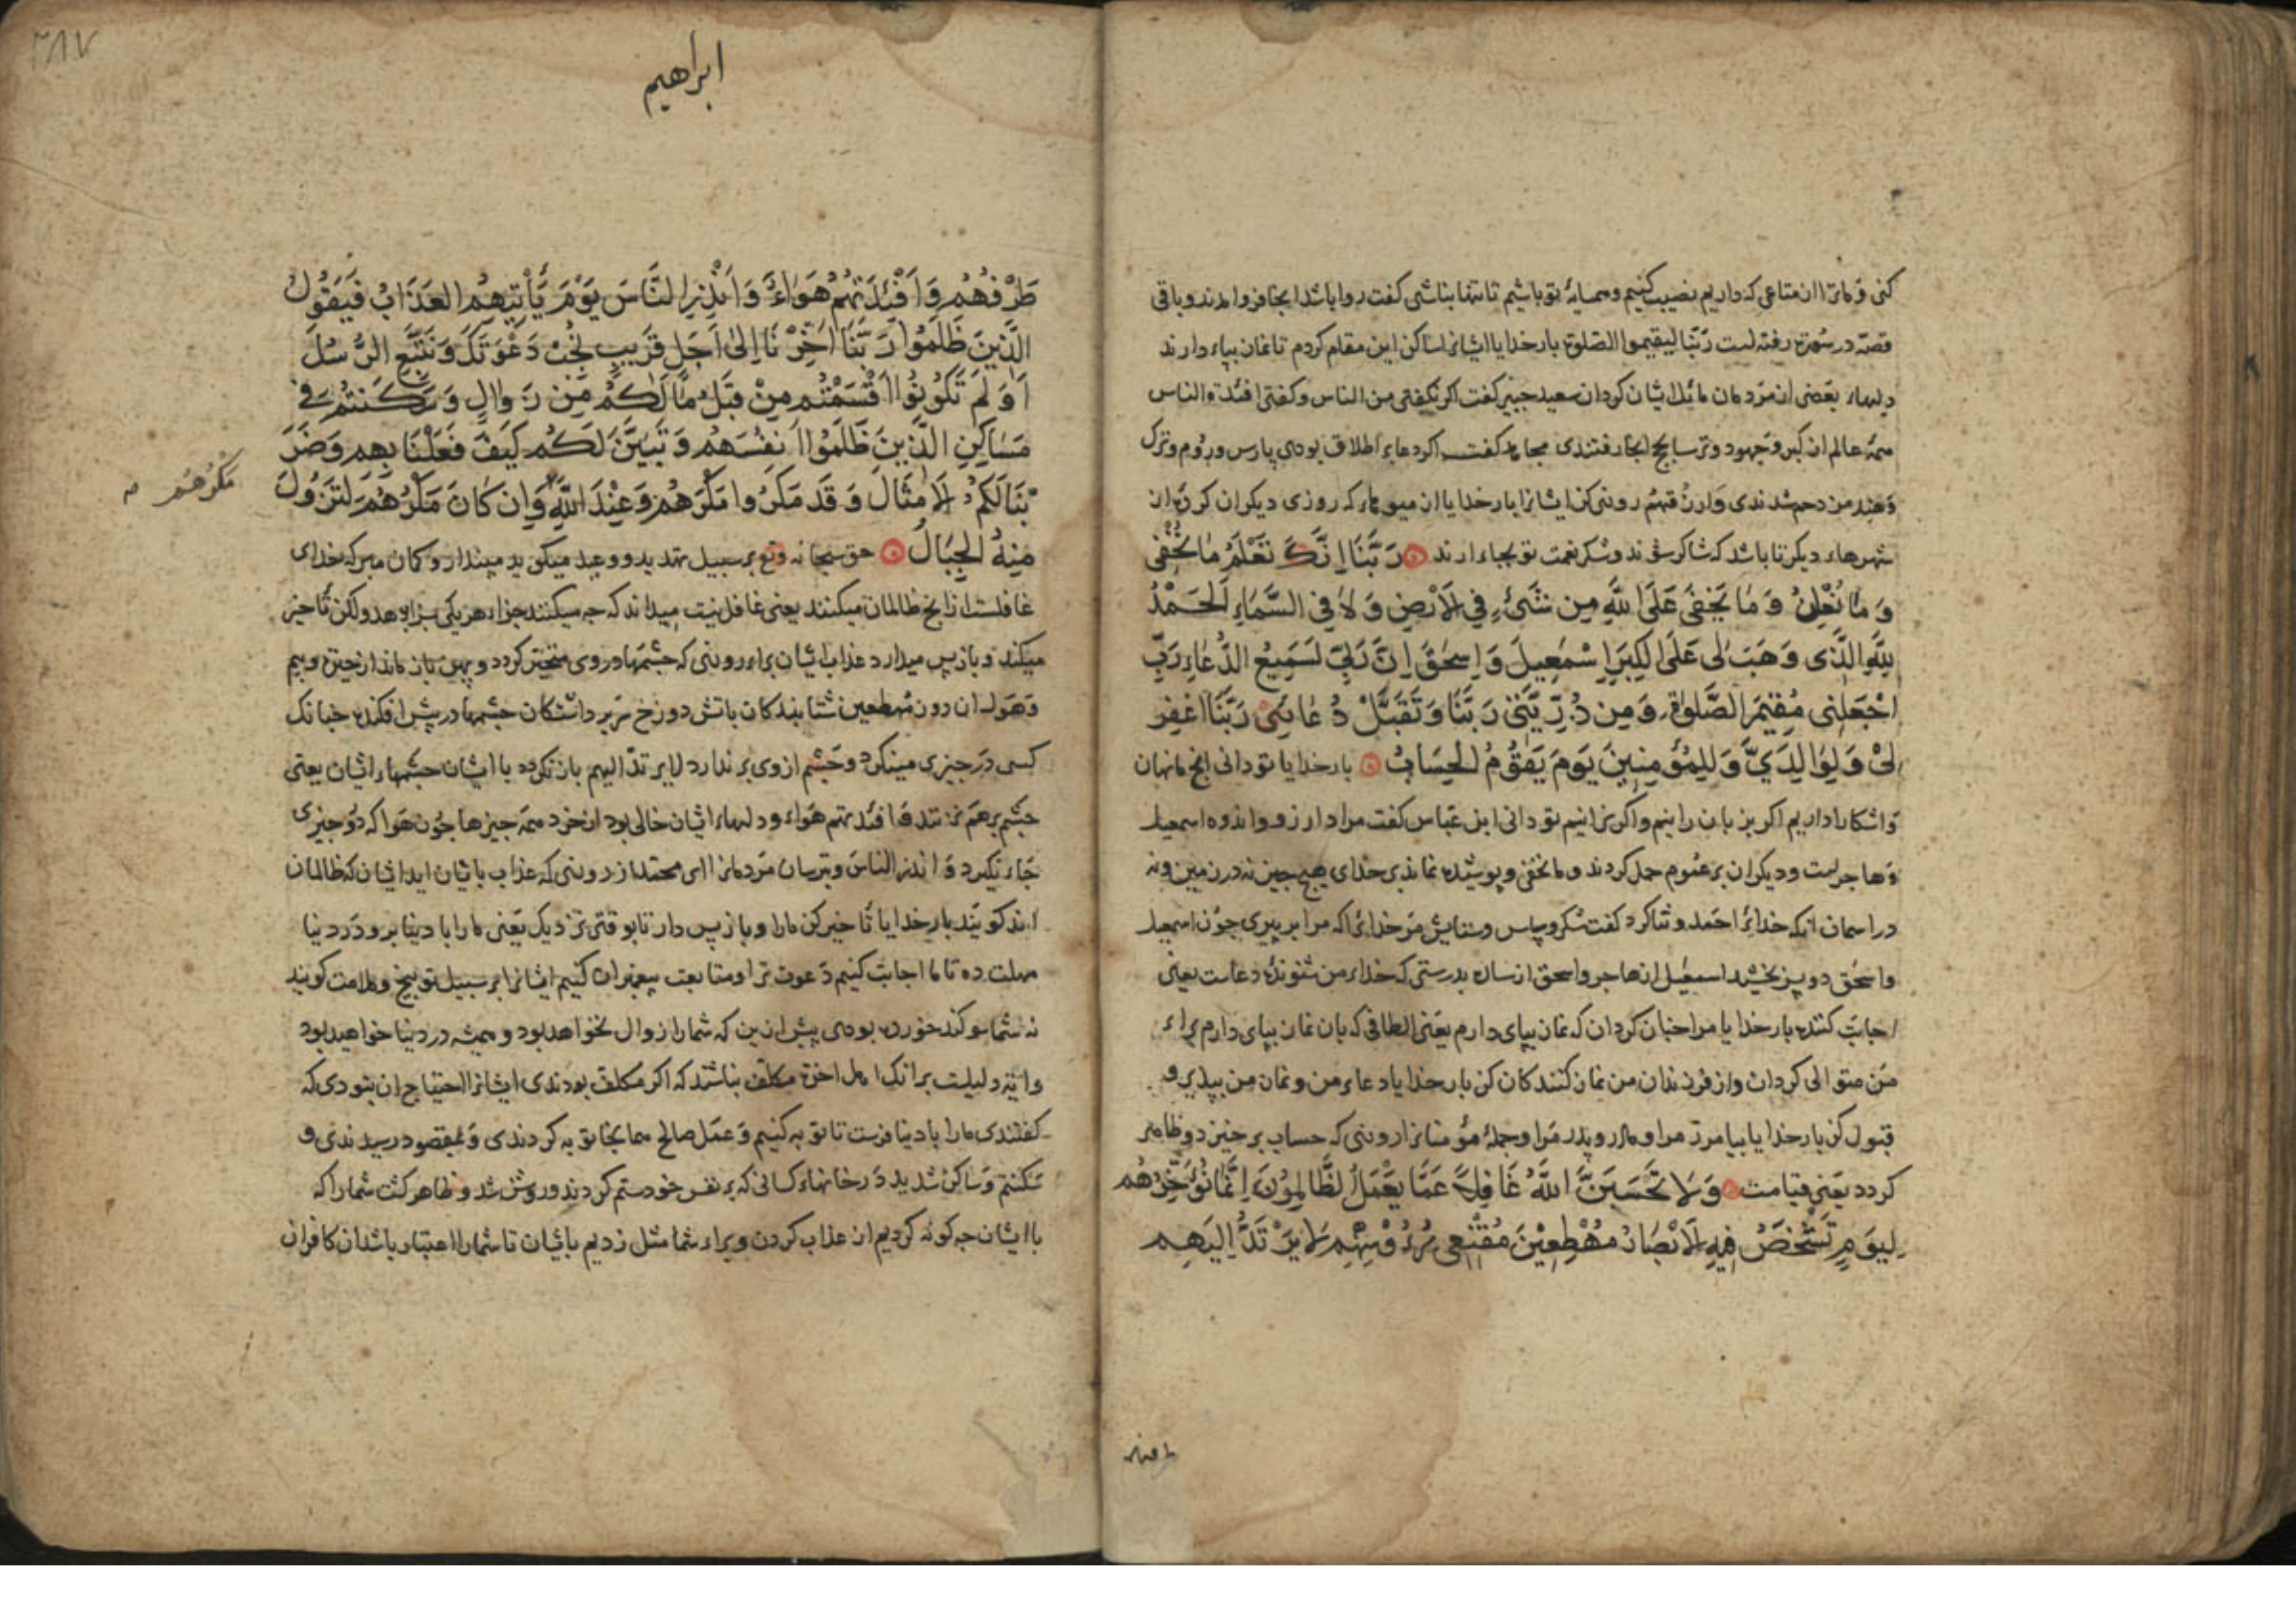 کنی و ما ترا از متاعی که داریم نصیب کنیم و همسایهٔ تو باشیم تا تنها نباشی کفت روا باشد ایجا فرو امدند و باقی
قصّه در سورة رفته است رَبّنا لیقیموا الصّلوة بار خدایا ایشانرا ساکن این مقام کردم تا نماز بپاء دارند
دلهاء بعضی از مردمان مائل ایشان کردان سعید جبیر کفت اکر نکفتی من الناس و کفتی افئدة الناس
همه عالم از کبر و جهود و ترسا بحج ایجا رفتندی مجاهد کفت اکر دعا بر اطلاق بودی پارس و روم و ترک
و هند من دحم شدندی وَارزُقهُم روزی کن ایشانرا بار خدایا از میوهاء که روزی دیکران کردۀ از
شهرهاء دیکر تا باشد که شاکر شوند و شکر نعمت تو بجاء ارند رَبَّنَا اِنَّكَ تَعْلَمُ مَا نُخْفِی
وَ مَا نُعْلِنُ وَ مَا یَخْفیٰ عَلَی اللّٰهِ مِن شَیْءٍ فِی الْاَرْضِ وَ لَا فِی السَّمَاءِ اَلْحَمْدُ
لِلّٰهِ الَّذِی وَهَبَ لِی عَلَی الْکِبَرِ اِسْمٰعِیلَ وَ اِسحٰقَ اِنَّ رَبِّی لَسَمِیعُ الدُّعَاءِ رَبِّ
اجْعَلْنِی مُقِیمَ الصَّلٰوةِ وَ مِن ذُرِّیَّتِی رَبَّنَا وَ تَقَبَّلْ دُعَائِی رَبَّنَا اغْفِرْ
لِیْ وَ لِوَالِدَیَّ وَ لِلْمُؤْمِنِینَ یَوْمَ یَقُومُ الْحِسَابُ بار خدایا تو دانی انچ ما نهان
و اشکارا داریم اکر بزبان رانیم و اکر نرانیم تو دانی ابن عبّاس کفت مراد ارزو و اندوه اسمعیل
و هاجر است و دیکران بر عموم حمل کردند و ما یخفی و پوشیده نماند بر خدای هیچ چیز نه در زمین و نه
در اسمان انکه خدایرا حمد و ثنا کرد کفت شکر و سپاس و ستایش مر خدایرا که مرا بر پیری چون اسمعیل
و اسحٰق دو پسر بخشید اسمعیل از هاجر و اسحق از ساره بدرستی که خداء من شنوندۀ دعاست یعنی
اجابت کننده بار خدایا مرا چنان کردان که نماز بپای دارم یعنی الطافی که بان نماز بپای دارم براء
من متوالی کردان و از فرزندان من نماز کنندکان کن بار خدایا دعاء من و نماز من بپذیر و
قبول کن بار خدایا بیامرز مرا و مادر و پدر مرا و جملهٔ مؤمنانرا روزی که حساب برخیزد و ظاهر
کردد یعنی قیامت وَ لَا تَحْسَبَنَّ اللّٰهَ غَافِلًا عَمَّا یَعْمَلُ الظَّالِمُونَ اِنَّمَا نُؤَخِّرُهُم
لِیَوْمٍ تَشْخَصُ فِیهِ الْاَبْصَارُ مُهْطِعِیْنَ مُقْنِعِی رُءُوْسِهِمْ لَا یَرْتَدُّ اِلَیهِم
طرفهم
۳۸۷
ابراهیم
طَرْفُهُمْ وَ اَفْئِدَتُهُمْ هَوَاءٌ وَ اَنْذِرِ النَّاسَ یَوْمَ یَأْتِیهِمُ الْعَذَابُ فَیَقُولُ
الَّذِینَ ظَلَمُوا رَبَّنَا اَخِّرْنَا اِلیٰ اَجَلٍ قَرِیبٍ نُّجِبْ دَعْوَتَکَ وَ نَتَّبِعِ الرُّسُلَ
اَوَ لَمْ تَکُونُوا اَقْسَمْتُم مِنْ قَبْلُ مَا لَکُمْ مِن زَوَالٍ وَ سَکَنتُمْ فِی
مَسَاکِنِ الَّذِینَ ظَلَمُوا اَنفُسَهُمْ وَ تَبَیَّنَ لَکُم کَیْفَ فَعَلْنَا بِهِم وَ ضَرَ
بْنَا لَکُمُ الْاَمْثَالَ وَ قَد مَکَرُوا مَکْرَهُمْ وَ عِنْدَ اللّٰهِ وَ اِن کَانَ مَکْرُهُمْ لِتَزُولَ
مَکْرُهُم
مِنهُ الْجِبَالُ حق سبحانه وتع بر سبیل تهدید و وعید میکوید مپندار و کمان مبر که خدای
غافلست از انچ ظالمان میکنند یعنی غافل نیست میداند که چه میکنند جزاء هر یکی بسزا بدهد و لکن تأخیر
میکند و باز پس میدارد عذاب ایشان براء روزی که چشمها در وی متحیّر کردد و پهن باز ماند از حیرة و بیم
و هول ان روز مُهطعین شتابندکان باتش دوزخ سر برداشتکان چشمها در پیش افکنده چنانک
کسی در چیزی مینکرد و چشم از وی برندارد لا یرتدّ الیهم باز نکردد با ایشان چشمهاء ایشان یعنی
چشم بر هم نزنند و افئدتهم هواء و دلهاء ایشان خالی بود از خرد همه چیزها چون هوا که درو چیزی
جاء نکیرد و انذر الناس و بترسان مردمانرا ای محمّد از روزی که عذاب بایشان اید ایشان که ظالمان
اند کویند بار خدایا تأخیر کن مارا و باز پس دار تا بوقتی نزدیک یعنی مارا با دنیا بر و در دنیا
مهلت ده تا ما اجابت کنیم دعوت ترا و متابعت پیغمبران کنیم ایشانرا بر سبیل توبیخ و ملامت کویند
نه شما سوکند خورده بودی پیش ازین که شمارا زوال نخواهد بود و همیشه در دنیا خواهید بود
و ایة دلیلست بر انک اهل اخرة مکلّف نباشند که اکر مکلّف بودندی ایشانرا احتیاج ان نبودی که
کفتندی مارا با دنیا فرست تا توبه کنیم و عمل صالح هم ایجا توبه کردندی و بمقصود رسیدندی و
سکنتم و ساکن شدید در خانهاء کسانی که بر نفس خود ستم کردند و روشن شد و ظاهر کشت شمارا که
با ایشان چه کونه کردیم از عذاب کردن و براء شما مثل زدیم بایشان تا شمارا اعتبار باشد ان کافران